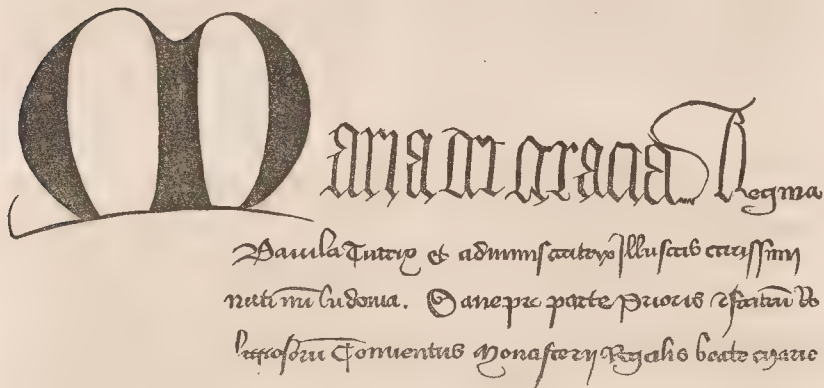 Maria di gracia Regina
Bauila Tutrix et administratrix Illustris carissimi
nati nri. Sane pro parte Prioris fratrū Re
Conuentus Monasterij Regalis beate marie